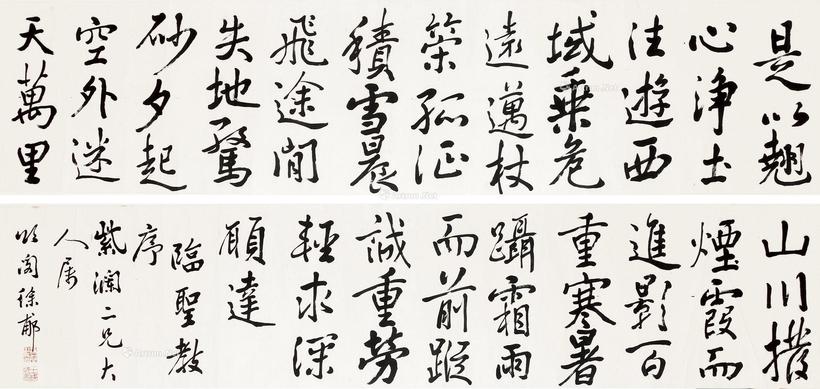 是以翹
心淨土
往遊西
域乗危
遠邁杖
策孤征
積雪晨
飛途閒
失地驚
砂夕起
空外迷
天萬里
山川撥
煙霞而
進影百
重寒暑
躡霜雨
而前蹤
誠重勞
輕求深
願達
臨聖教
序
紫瀾二兄大
人属
頌閣徐郙